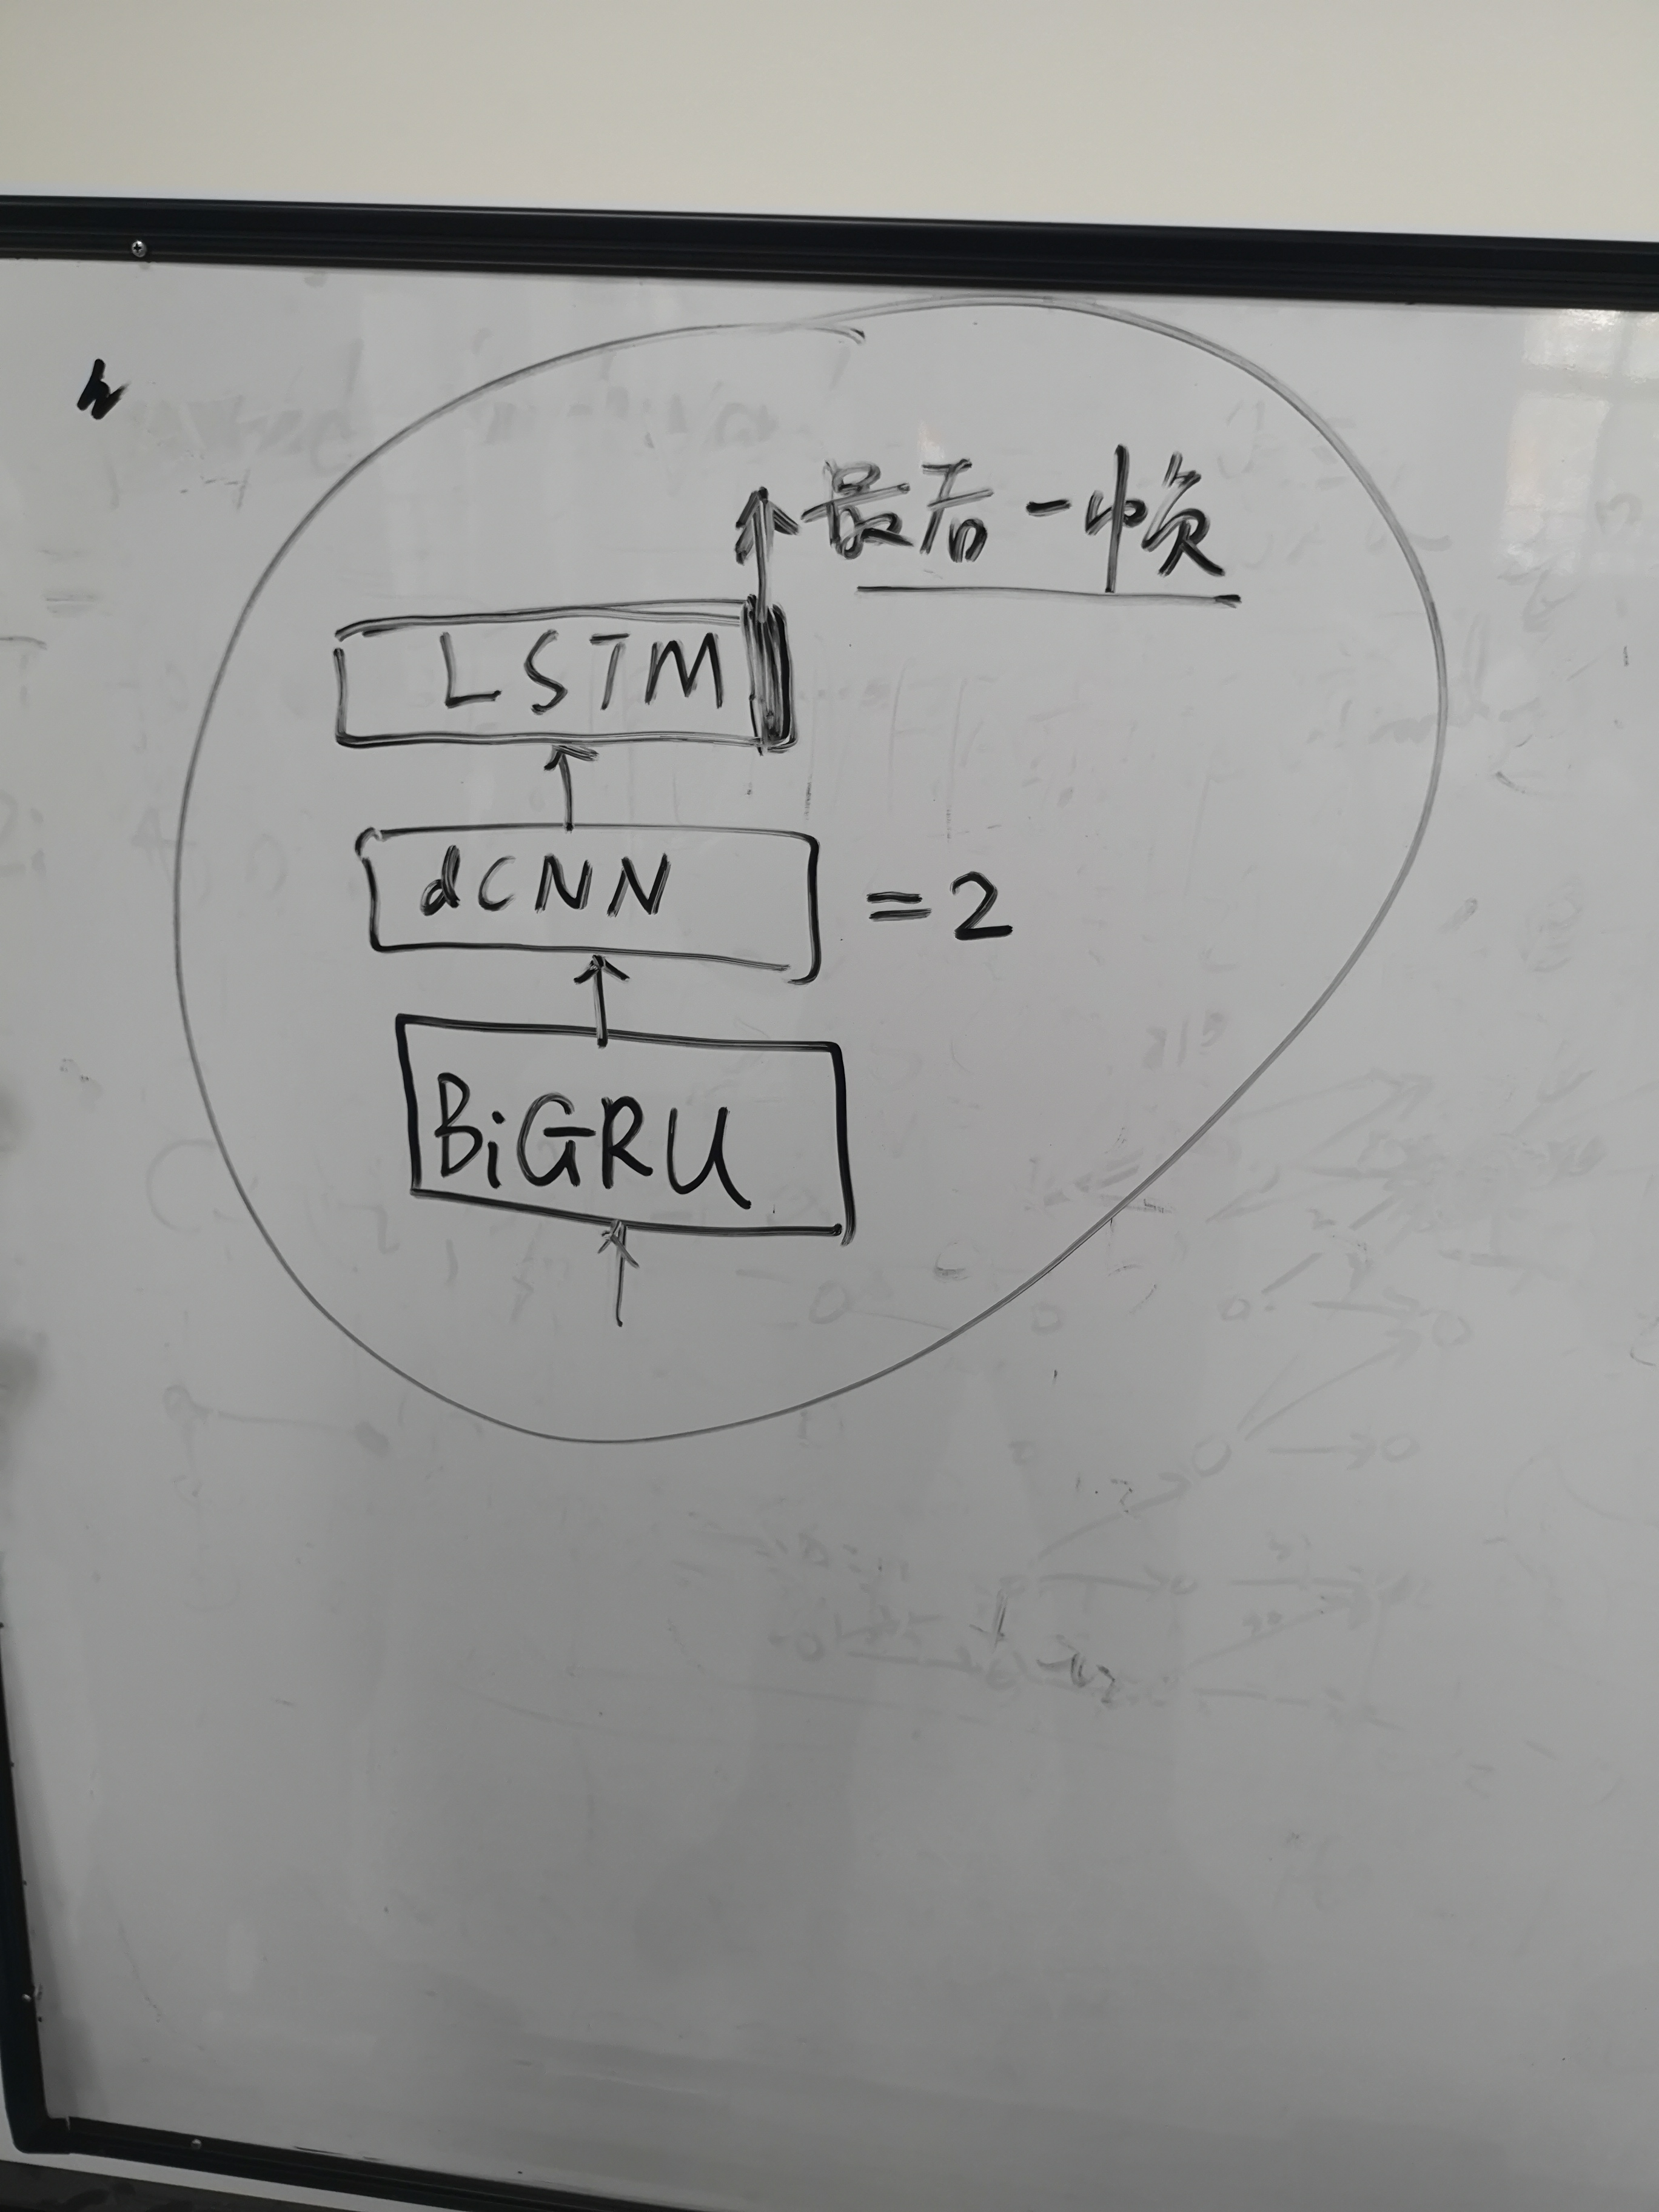 最后一帧
LSTM
dCNN =2
BiGRU